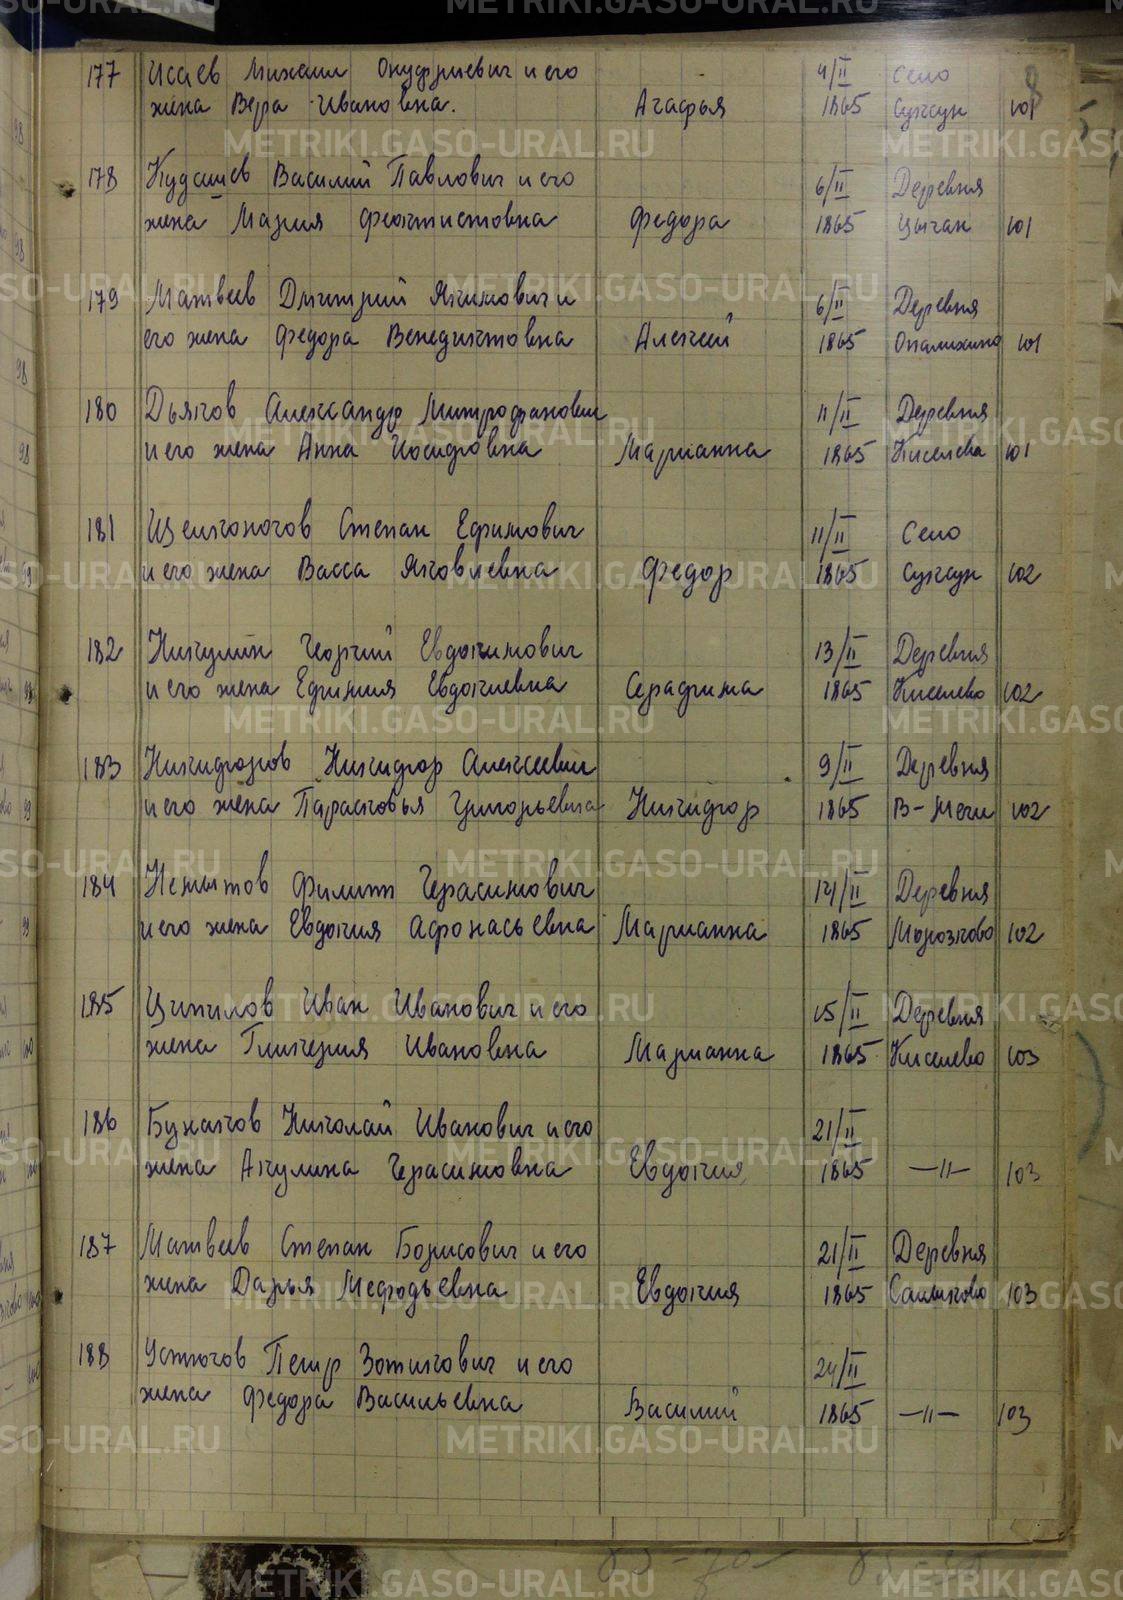 177 Исаев Михаил Онуфриевич и его 4/II Село
жена Вера Ивановна. Агафья 1865 Суксун 101
178 Кудашев Василий Павлович и его 6/II Деревня
жена Мария Феоктистовна Федора 1865 Цыган 101
179 Матвеев Дмитрий Якимович и 6/II Деревня
его жена Федора Венедиктовна Алексей 1865 Опалихино 101
180 Дьяков Александр Митрофанович 11/II Деревня
и его жена Анна Иосифовна Марианна 1865 Киселева 101
181 Щелконогов Степан Ефимович 11/II Село
и его жена Васса Яковлевна Федор 1865 Суксун 102
182 Никулин Георгий Евдокимович 13/II Деревня
и его жена Ефимия Евдокиевна Серафима 1865 Киселево 102
183 Никифоров Никифор Алексеевич 9/II Деревня
и его жена Парасковья Григорьевна Никифор 1865 В-Мечи 102
184 Немытов Филипп Герасимович 14/II Деревня
и его жена Евдокия Афонасьевна Марианна 1865 Морозково 102
185 Щипилов Иван Иванович и его 15/II Деревня
жена Гликерия Ивановна Марианна 1865 Киселево 103
186 Бунаков Николай Иванович и его 21/II
жена Акулина Герасимовна Евдокия 1865 —||— 103
187 Матвеев Степан Борисович и его 21/II Деревня
жена Дарья Мефодьевна Евдокия 1865 Сасыково 103
188 Устюгов Петр Зотикович и его 24/II
жена Федора Васильевна Василий 1865 —||— 103
METRIKI.GASO-URAL.RU